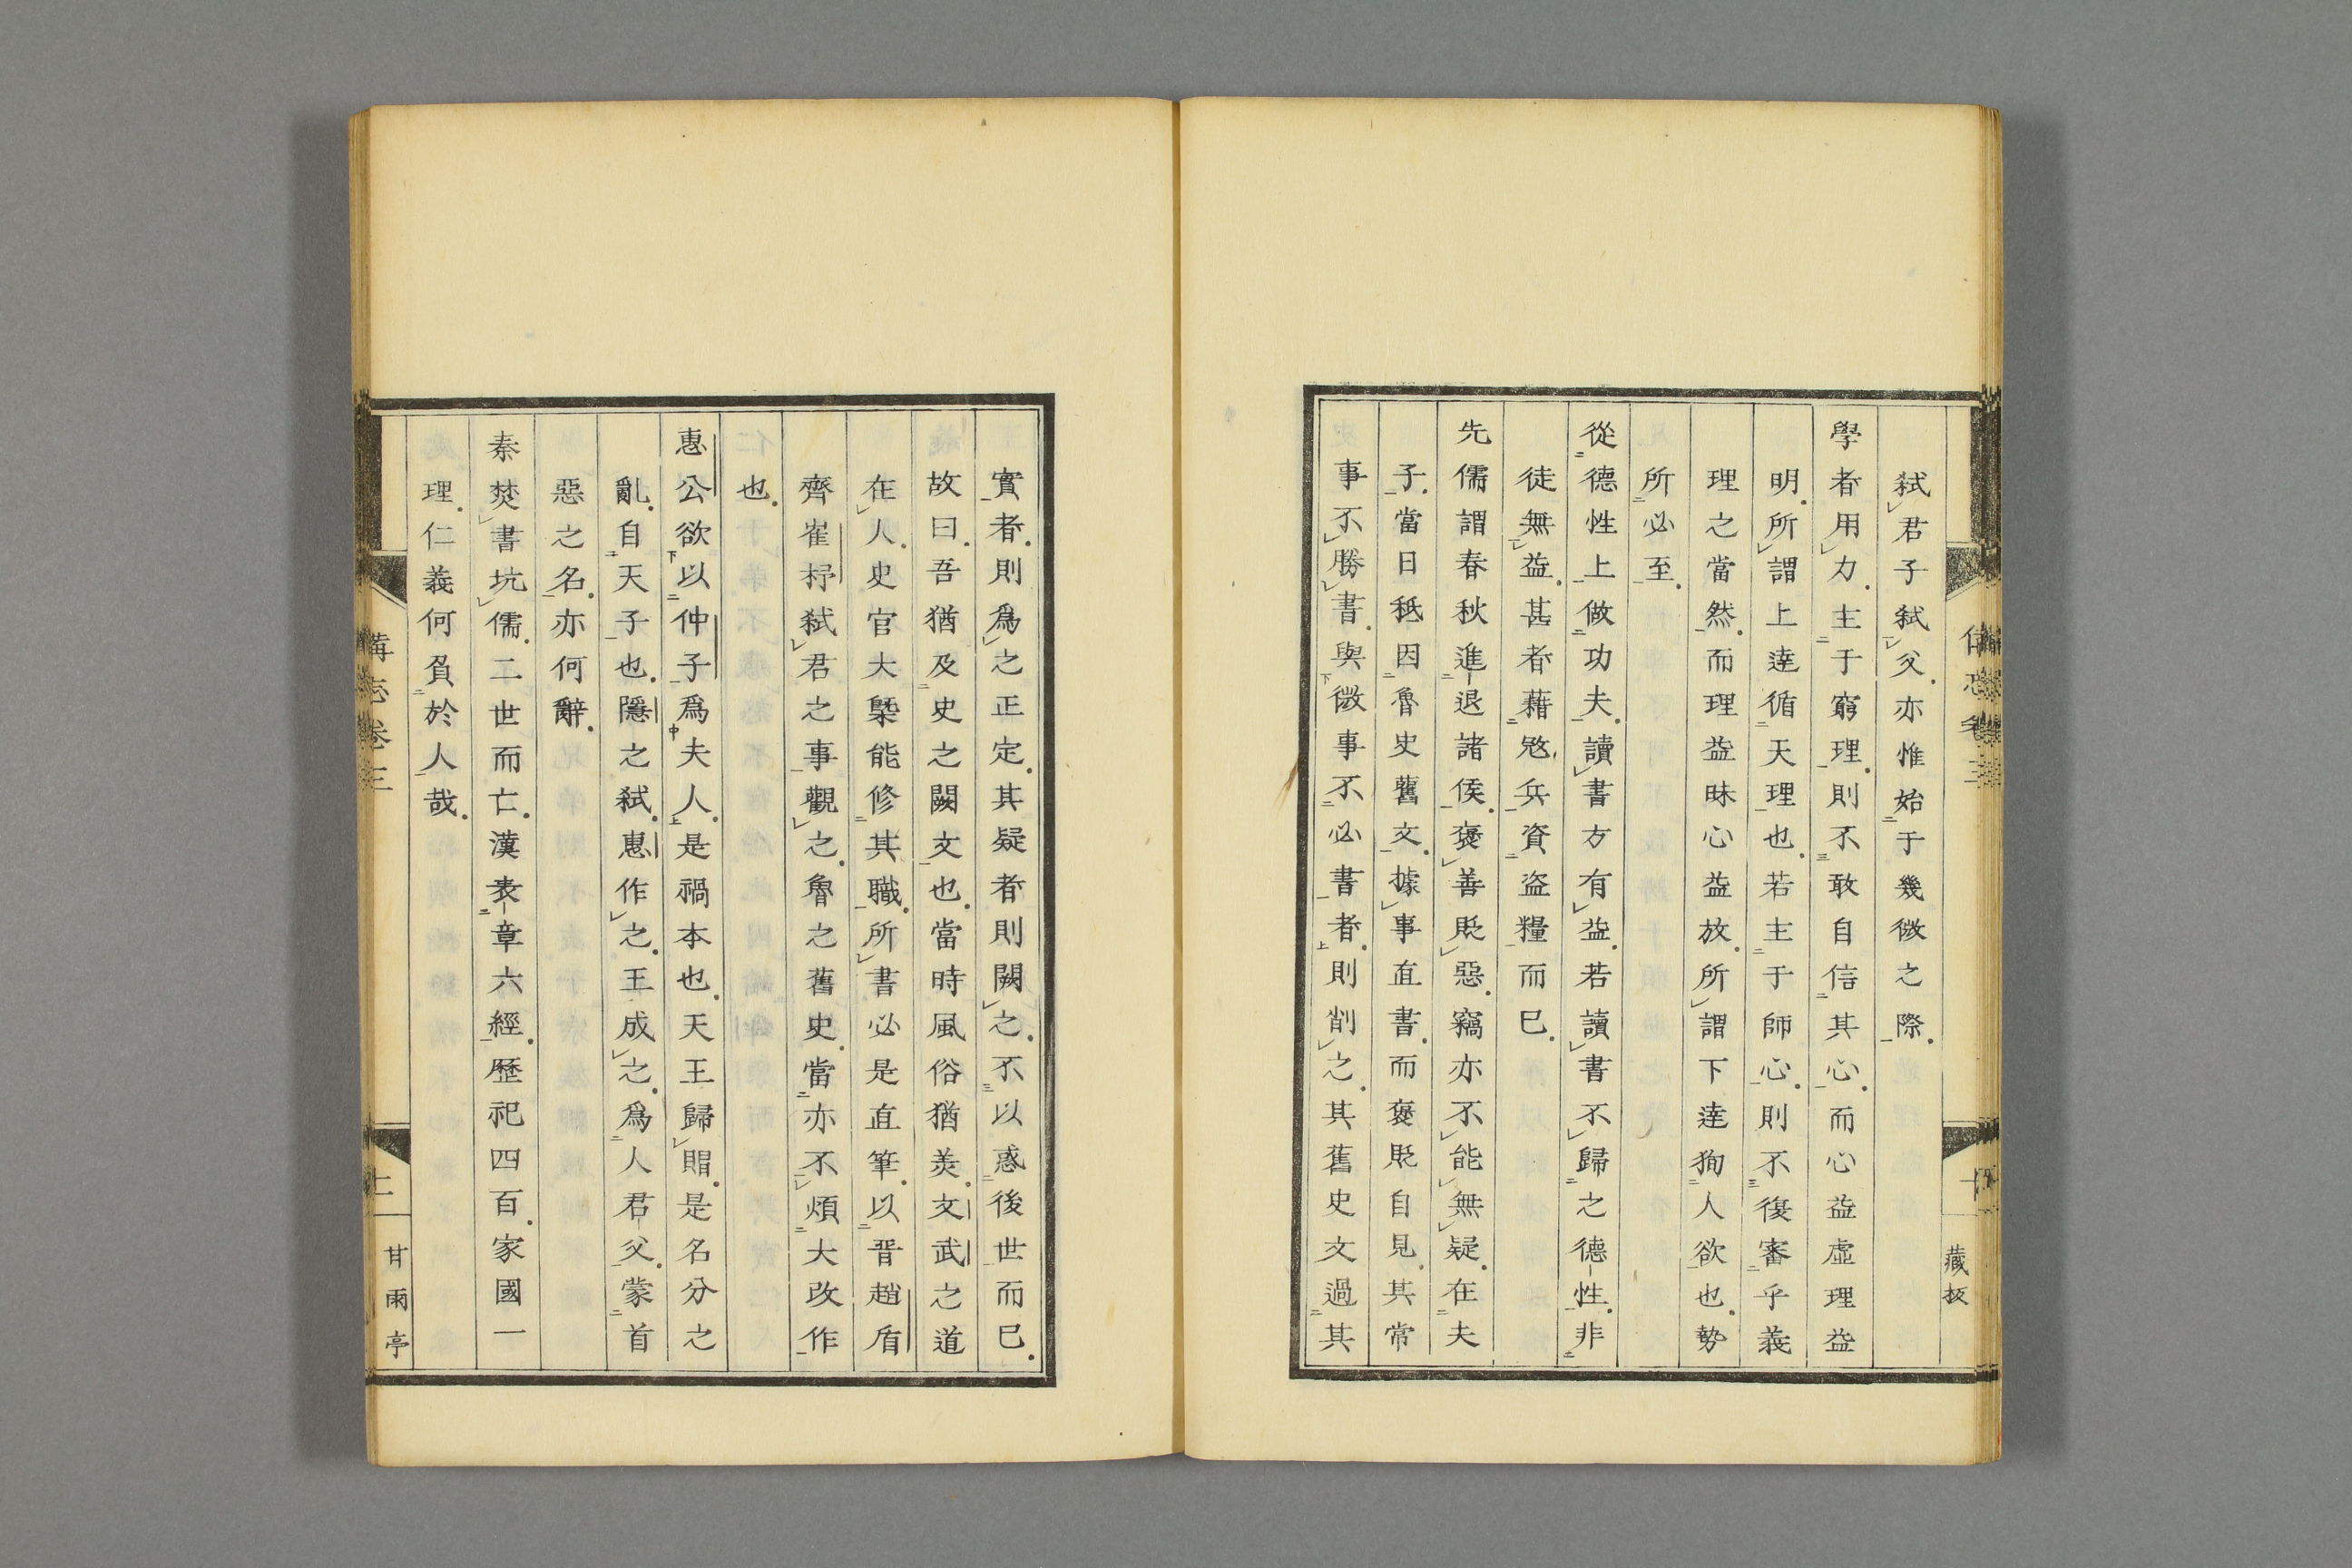 弑君子弑父亦惟始于幾微之際
學者用力主于窮理則不敢自信其心而心益虛理益
明所謂上達循天理也若主于師心則不復審乎義
理之當然而理益昧心益放所謂下達狥人欲也勢
所必至
從德性上做功夫讀書方有益若讀書不歸之德性非
徒無益甚者藉㓂兵資盗糧而已
先儒謂春秋進退諸侯褒善貶惡竊亦不能無疑在夫
子當日秖因魯史舊文據事直書而褒貶自見其常
事不勝書與微事不必書者則削之其舊史文過其
藏板
實者則爲之正定其疑者則闕之不以惑後世而已
故曰吾猶及史之闕文也當時風俗猶美文武之道
在人史官大槩能修其職所書必是直筆以晋趙盾
齊崔杼弑君之事觀之魯之舊史當亦不煩大改作
也
惠公欲以仲子爲夫人是禍本也天王歸賵是名分之
亂自天子也隱之弑惠作之王成之爲人君父蒙首
惡之名亦何辭
秦焚書坑儒二世而亡漢表章六經歷祀四百家國一
理仁義何負於人哉
備忘卷三
甘雨亭